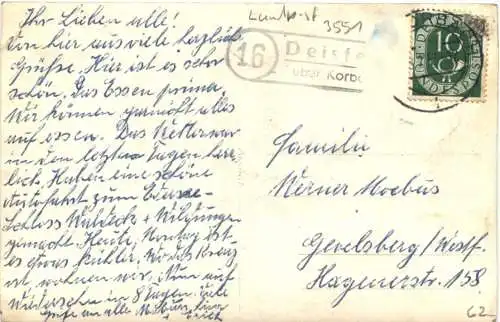 Landpost
3551
16
Deisfe
über Korba
10
Ihr Lieben alle!
Von hier aus viele herzlich
Grüße. Hier ist es sehr
schön. Das Essen prima,
Wir können garnicht alles
auf essen. Das Wetter war
in den letzten Tagen herr
lich. Haben eine schöne
Autofahrt zum Edersee
Schloss Waldeck + Wildungen
gemacht. Heute, Montag ist
es etwas kühler,
wohnen wir. Nun auf
Wiedersehn in 8 Tagen. Gute
Grüße an alle
Erich
Familie
Werner Moebus
Gevelsberg/Westf.
Hagenerstr. 158
62